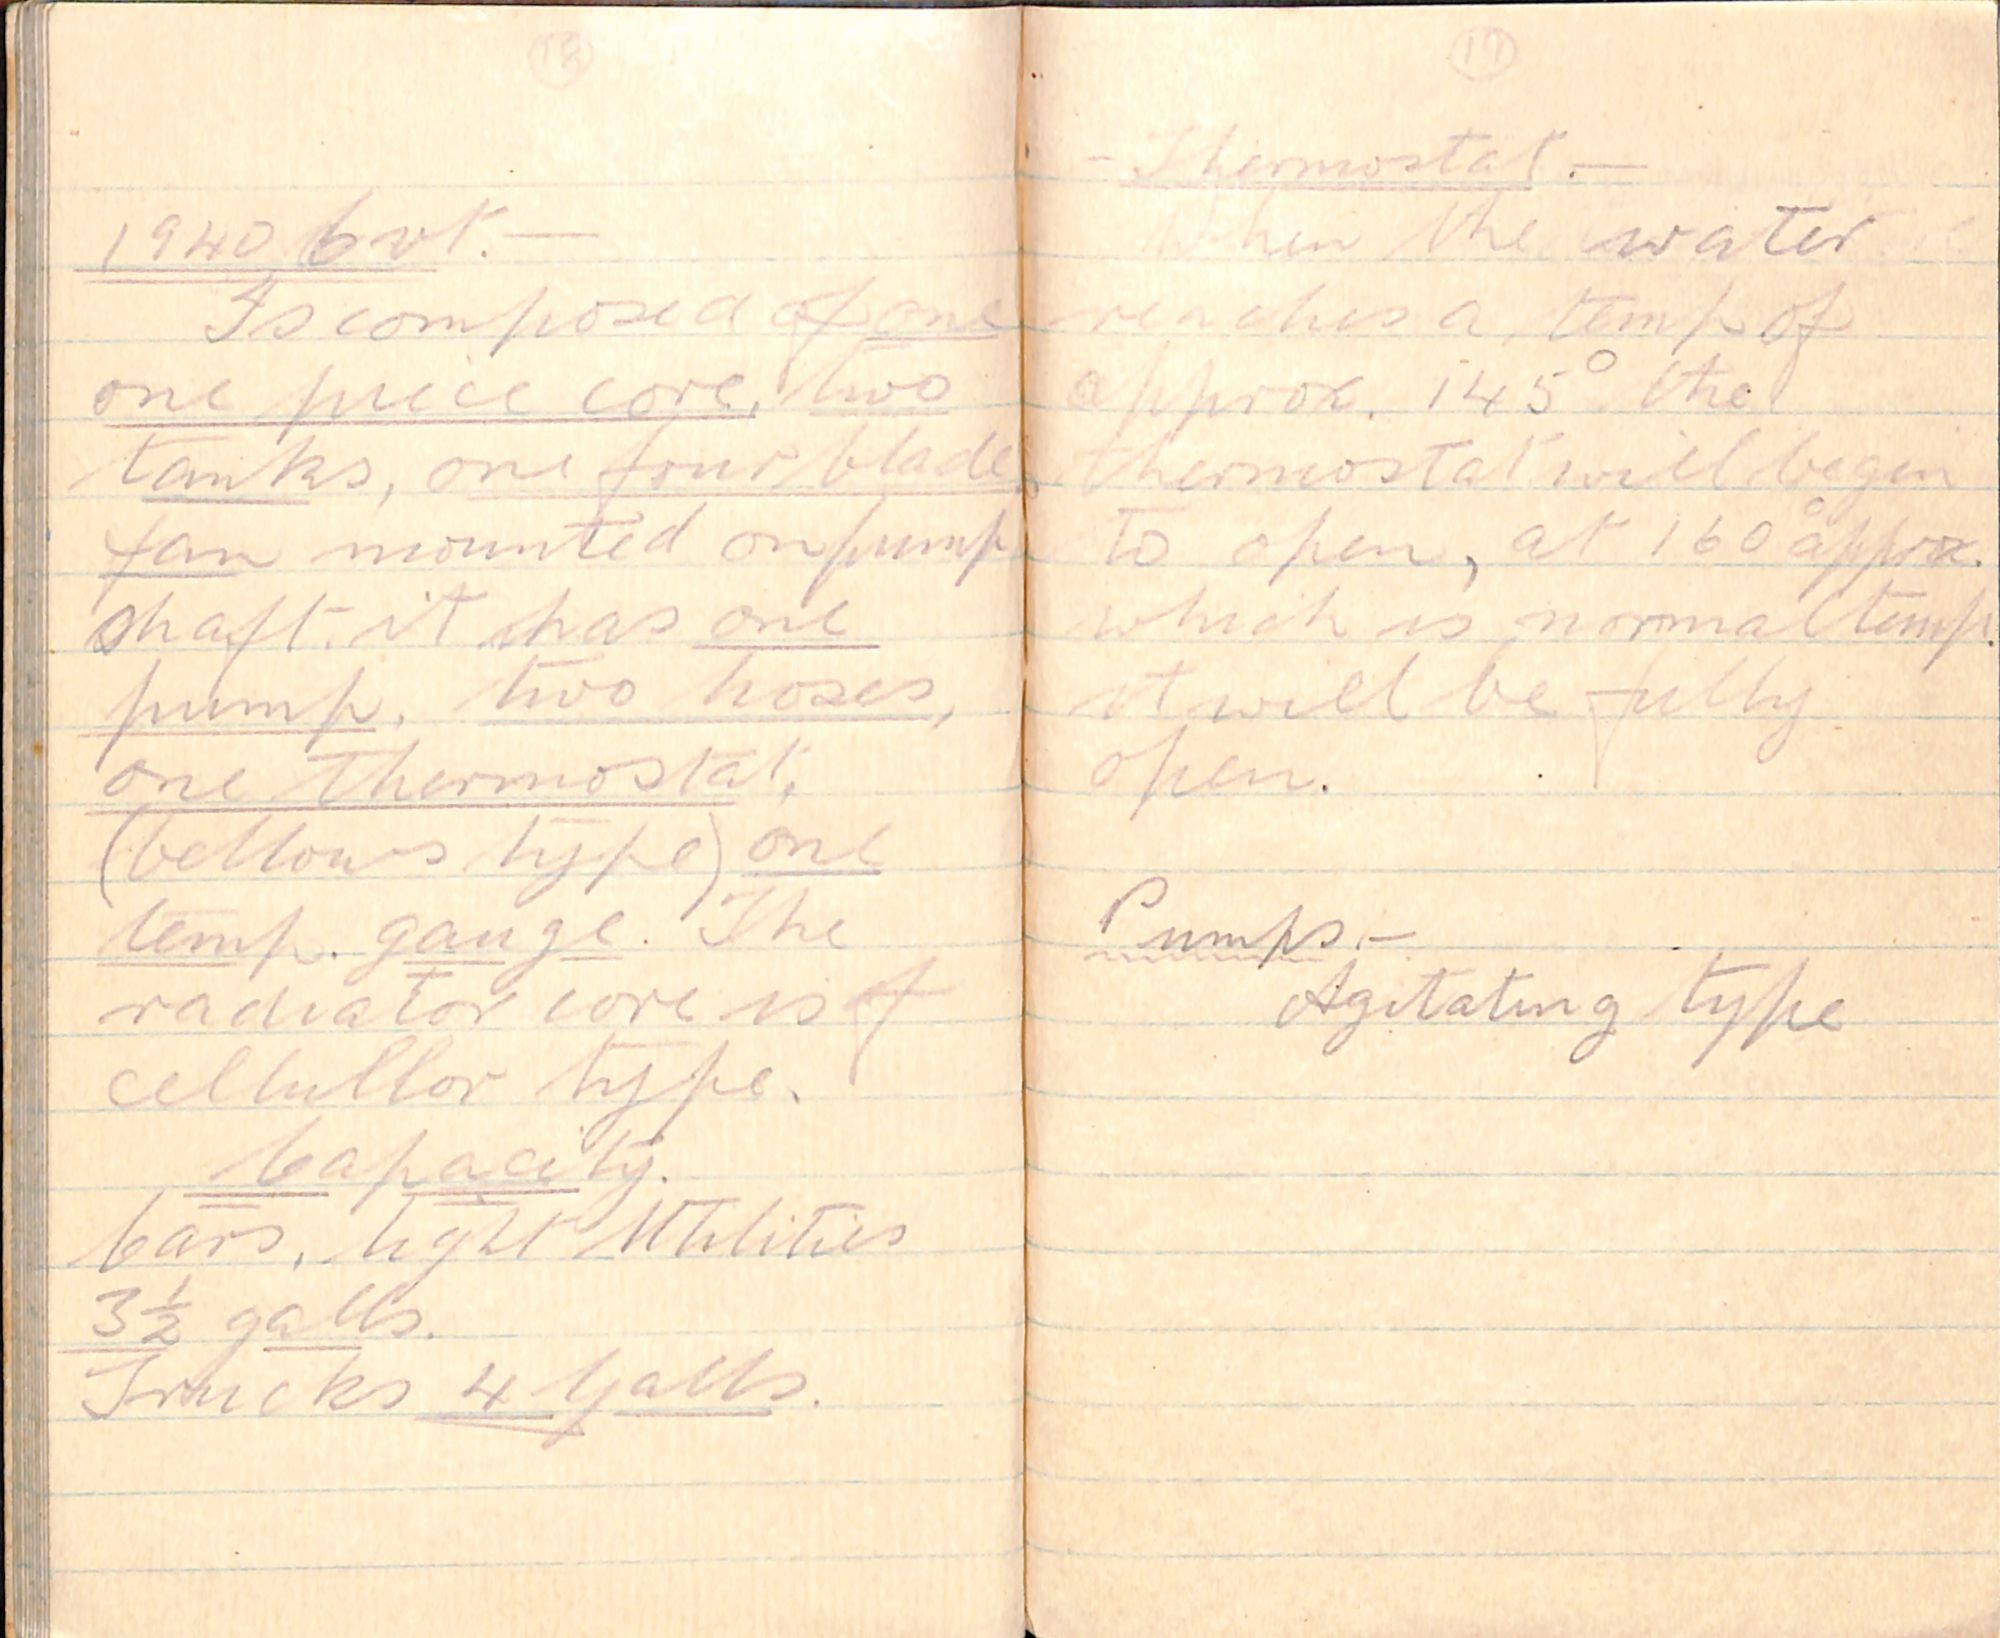 18
1940 Cvt. —
Is composed of one
one piece core, two
tanks, one four blade
fan mounted on pump
shaft. it has one
pump, two hoses,
one thermostat,
(bellows type) one
temp. gauge. The
radiator core is of
cellullor type.
Capacity.
Cars, light Utilities
3½ galls.
Trucks 4 Galls.
17
- Thermostat. —
When the water
reaches a temp of
approx. 145° the
thermostat will begin
to open, at 160° approx.
which is normal temp.
it will be fully
open.
Pumps. -
Agitating type